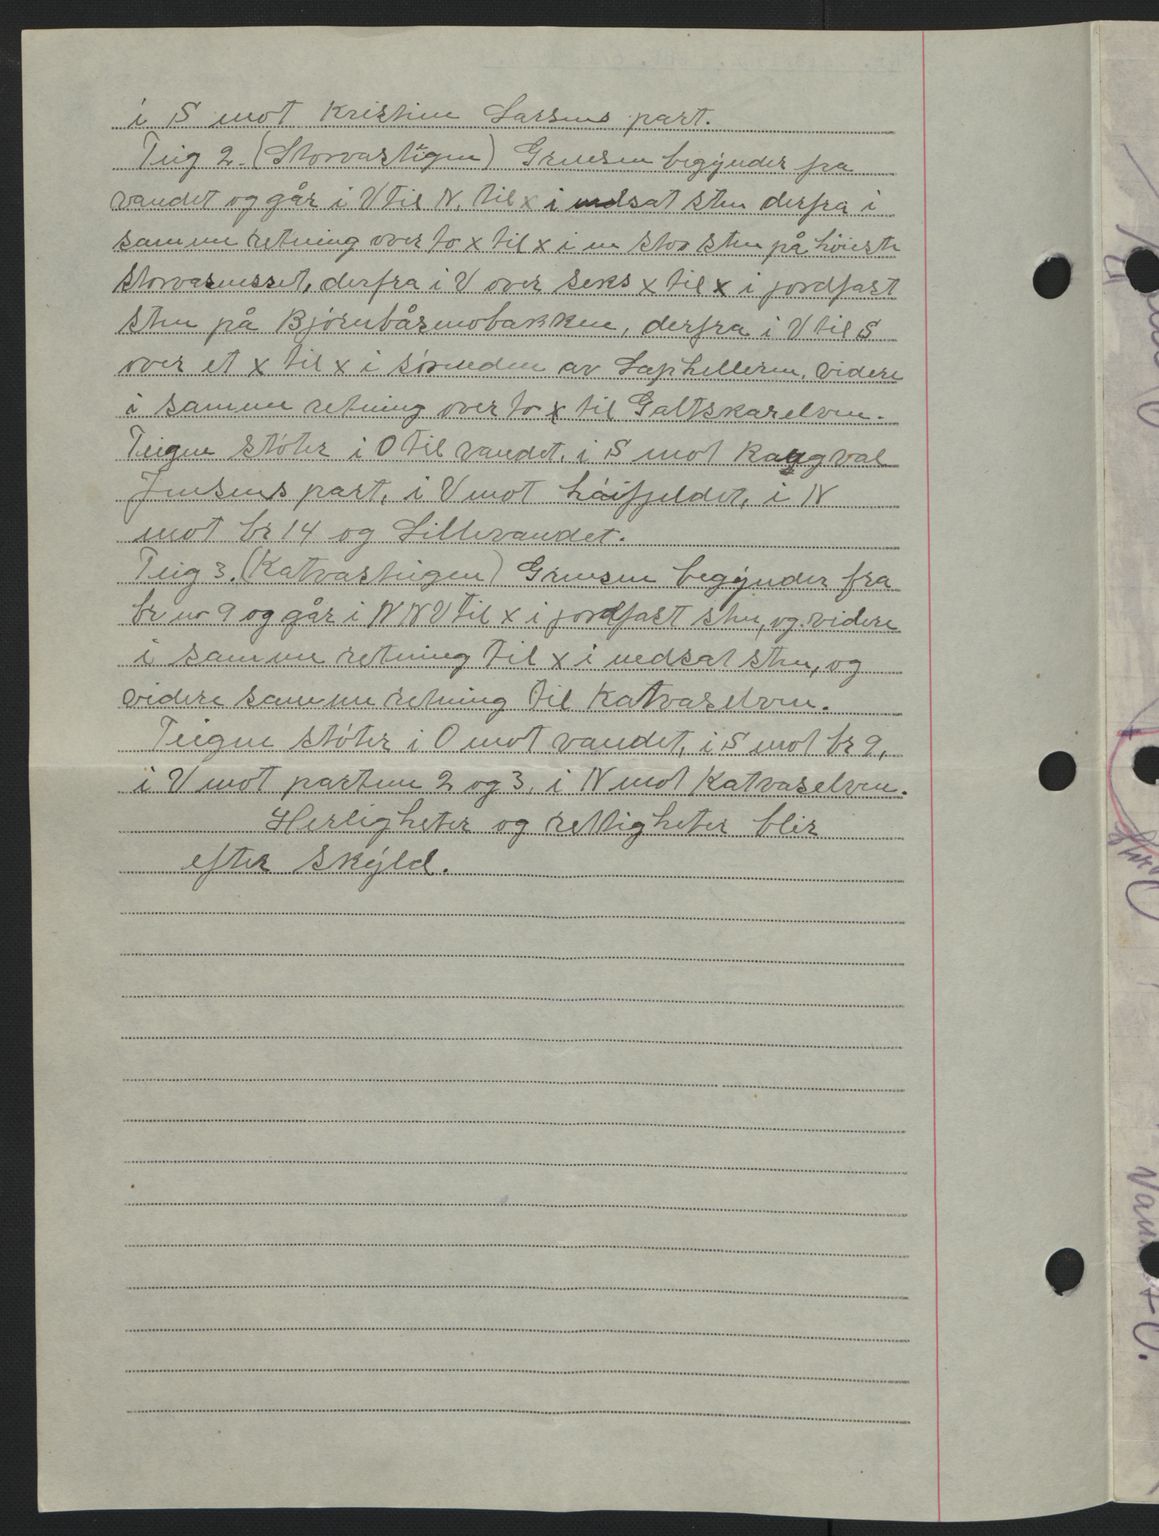 i S mot Kristine Larsens part.
Teig 2. (Storvasteigen) Grensen begynder fra
vandet og går i V til N. til x i nedsat sten derfra i
samme retning over to x til x i en stor sten på høieste
Storvasnesset, derfra i V over seks x til x i jordfast
sten på Bjørnbåsmobakken, derfra i V til S
over et x til x i sørenden av Laphelleren, videre
i samme retning over to x til Galtskarelven.
Teigen støter i O til vandet, i S mot Rangval
Jensens part, i V mot håifjeldet, i N
mot br 14 og Lillevandet.
Teig 3. (Katvasteigen) Grensen begynder fra
br no 9 og går i N N V til x i jordfast sten, og videre
i samme retning til x i nedsat sten, og
videre samme retning til Katvaselven.
Teigen støter i O mot vandet, i S mot br 9,
i V mot parten 2 og 3, i N mot Katvaselven.
Herligheter og rettigheter blir
efter skyld.